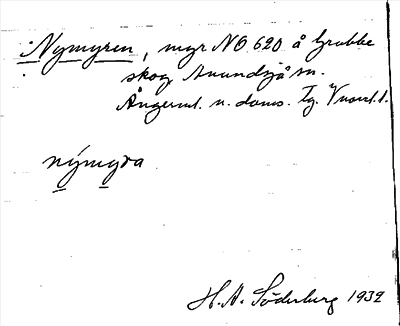 Nymyren, myr NO 620 å Grubbe
skog Anundsjö sn.
Ångerml. n. doms. Tg. Västl.
nýmyra
H. A. Söderberg 1932